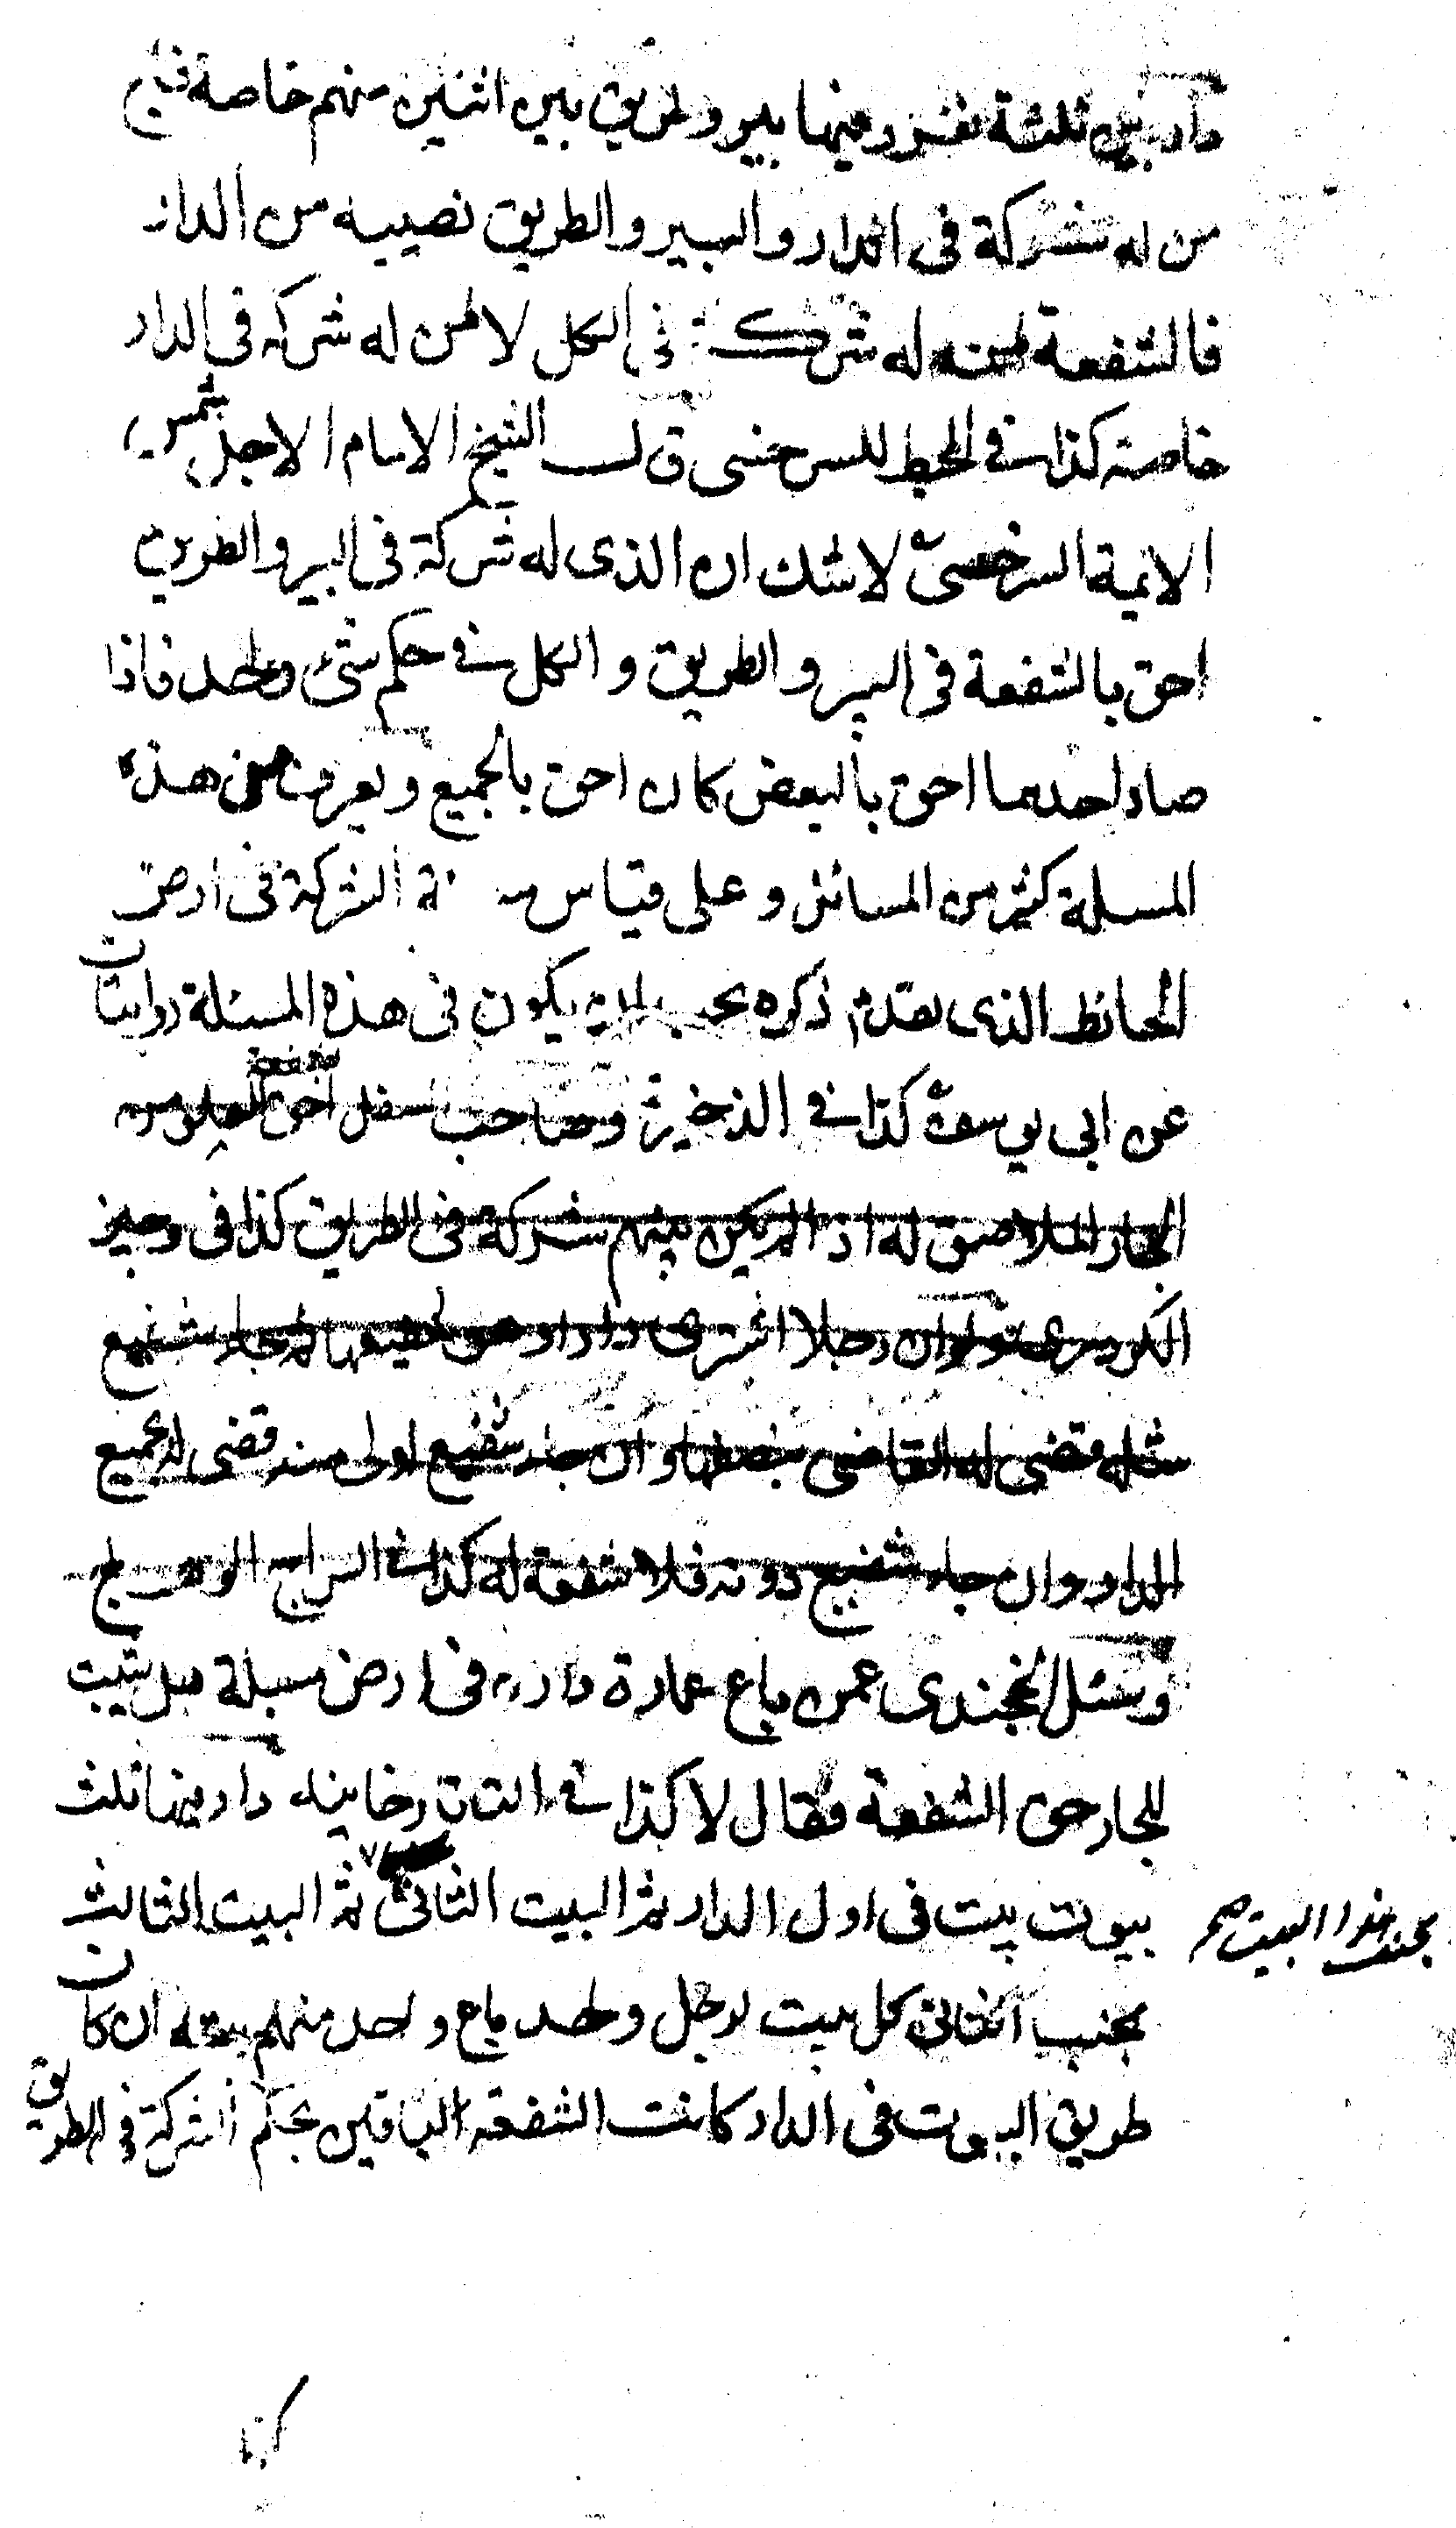 دار بين ثلثة نفر وفيها بير وطريق بين اثنين منهم خاصة فباع
من له شركة في الدار والبير والطريق نصيبه من الدار
فالشفعة لمن له شركة في الكل لا لمن له شركة في الدار
خاصة كذا في المحيط للسرخسي قال الشيخ الامام الاجل شمس
الائمة السرخسي لا شك ان الذي له شركة في البير والطريق
احق بالشفعة في البير والطريق والكل في حكم شئ واحد فاذا
صار احدهما احق بالبعض كان احق بالجميع ويعرف من هذه
المسلة كثير من المسائل وعلى قياس الشركة في ارض
الحائط الذي تقدم ذكره يجب ان يكون في هذه المسئلة روايتان
عن ابي يوسف كذا في الذخيرة وصاحب السفل احق بشفعة العلو من
الجار الملاصق له اذا لم يكن بينهم شركة في الطريق كذا في وجيز
الكردري ولو ان رجلا اشترى دارا وهو شفيعها ثم جاء شفيع
مثله قضى له القاضي بنصفها وان جاء شفيع اولى منه قضى له بجميع
الدار وان جاء شفيع دونه فلا شفعة له كذا في السراج الوهاج
وسئل الخجندي عمن باع عمارة داره في ارض مسبلة هل يثبت
للجار حق الشفعة فقال لا كذا في التتارخانية دار فيها ثلث
بيوت بيت في اول الدار ثم البيت الثاني ثم البيت الثالث
بجنب هذا البيت صح
بجنب الثاني كل بيت لرجل واحد باع واحد منهم بيته ان كان
طريق البيوت في الدار كانت الشفعة للباقين بحكم الشركة في الطريق